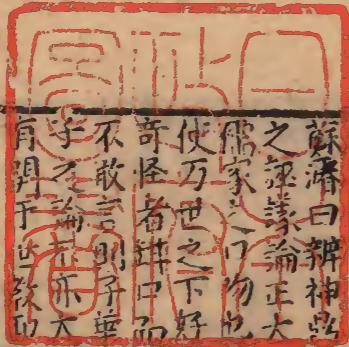 蘇濬曰辨神鼎
之誣議論正大
儒家之口吻也
使万世之下好
奇怪者緘口而
不敢言則子華
子之論其亦大
有關于世教